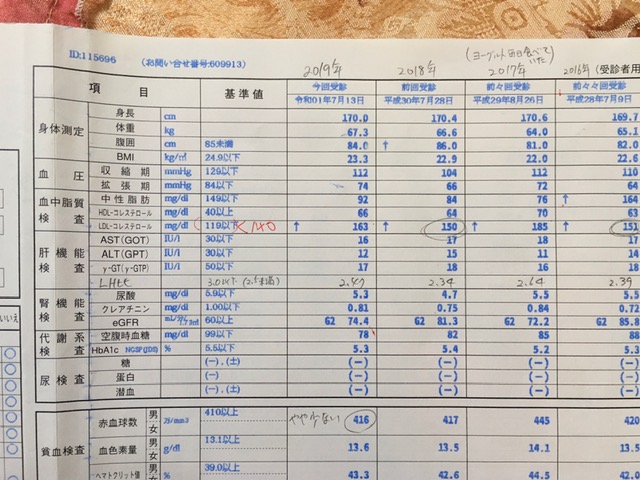 2019年 2018年 (ヨーグルト毎日食べていた) 2017年 2016年
ID:115696 (お問い合せ番号:609913) (受診者用
項目 基準値 今回受診 令和01年7月13日 前回受診 平成30年7月28日 前々回受診 平成29年8月26日 前々々回受診 平成28年7月9日
身体測定 身長 cm 170.0 170.4 170.6 169.7
体重 kg 67.3 66.6 64.0 65.1
腹囲 cm 85未満 84.0 ↑ 86.0 81.0 82.0
BMI kg/㎡ 24.9以下 23.3 22.9 22.0 22.6
血圧 収縮期 mmHg 129以下 112 104 112 110
拡張期 mmHg 84以下 74 66 72 64
血中脂質検査 中性脂肪 mg/dl 149以下 92 84 76 ↑ 164
HDL-コレステロール mg/dl 40以上 66 64 70
LDL-コレステロール mg/dl 119以下 <140 ↑ 163 ↑ 150 ↑ 185 ↑ 151
肝機能検査 AST(GOT) IU/l 30以下 16 17 18 17
ALT(GPT) IU/l 30以下 12 15 11 14
γ-GT(γ-GTP) IU/l 50以下 17 18 16 18
LH比 2.47 2.34 2.64 2.39
腎機能検査 尿酸 mg/dl 5.9以下 5.3 4.7 5.5 5.5
クレアチニン mg/dl 1.00以下 0.81 0.75 0.84 0.72
eGFR 60以上 G2 74.4 G2 81.3 G2 72.2 G2 85.8
代謝系検査 空腹時血糖 mg/dl 99以下 78 82 85 88
HbA1c NGSP(JDS) % 5.5以下 5.3 5.4 5.2 5.3
尿検査 糖 (−),(±) (−) (−) (−) (−)
蛋白 (−),(±) (−) (−) (−) (−)
潜血 (−),(±) (−) (−) (−) (−)
いいえ
貧血検査 赤血球数 男 女 万/mm3 410以上 やや少ない 416 417 445 420
血色素量 男 女 g/dl 13.1以上 13.6 13.5 14.1 13.5
ヘマトクリット値 男 % 39.0以上 43.3 42.6 44.5 42.0